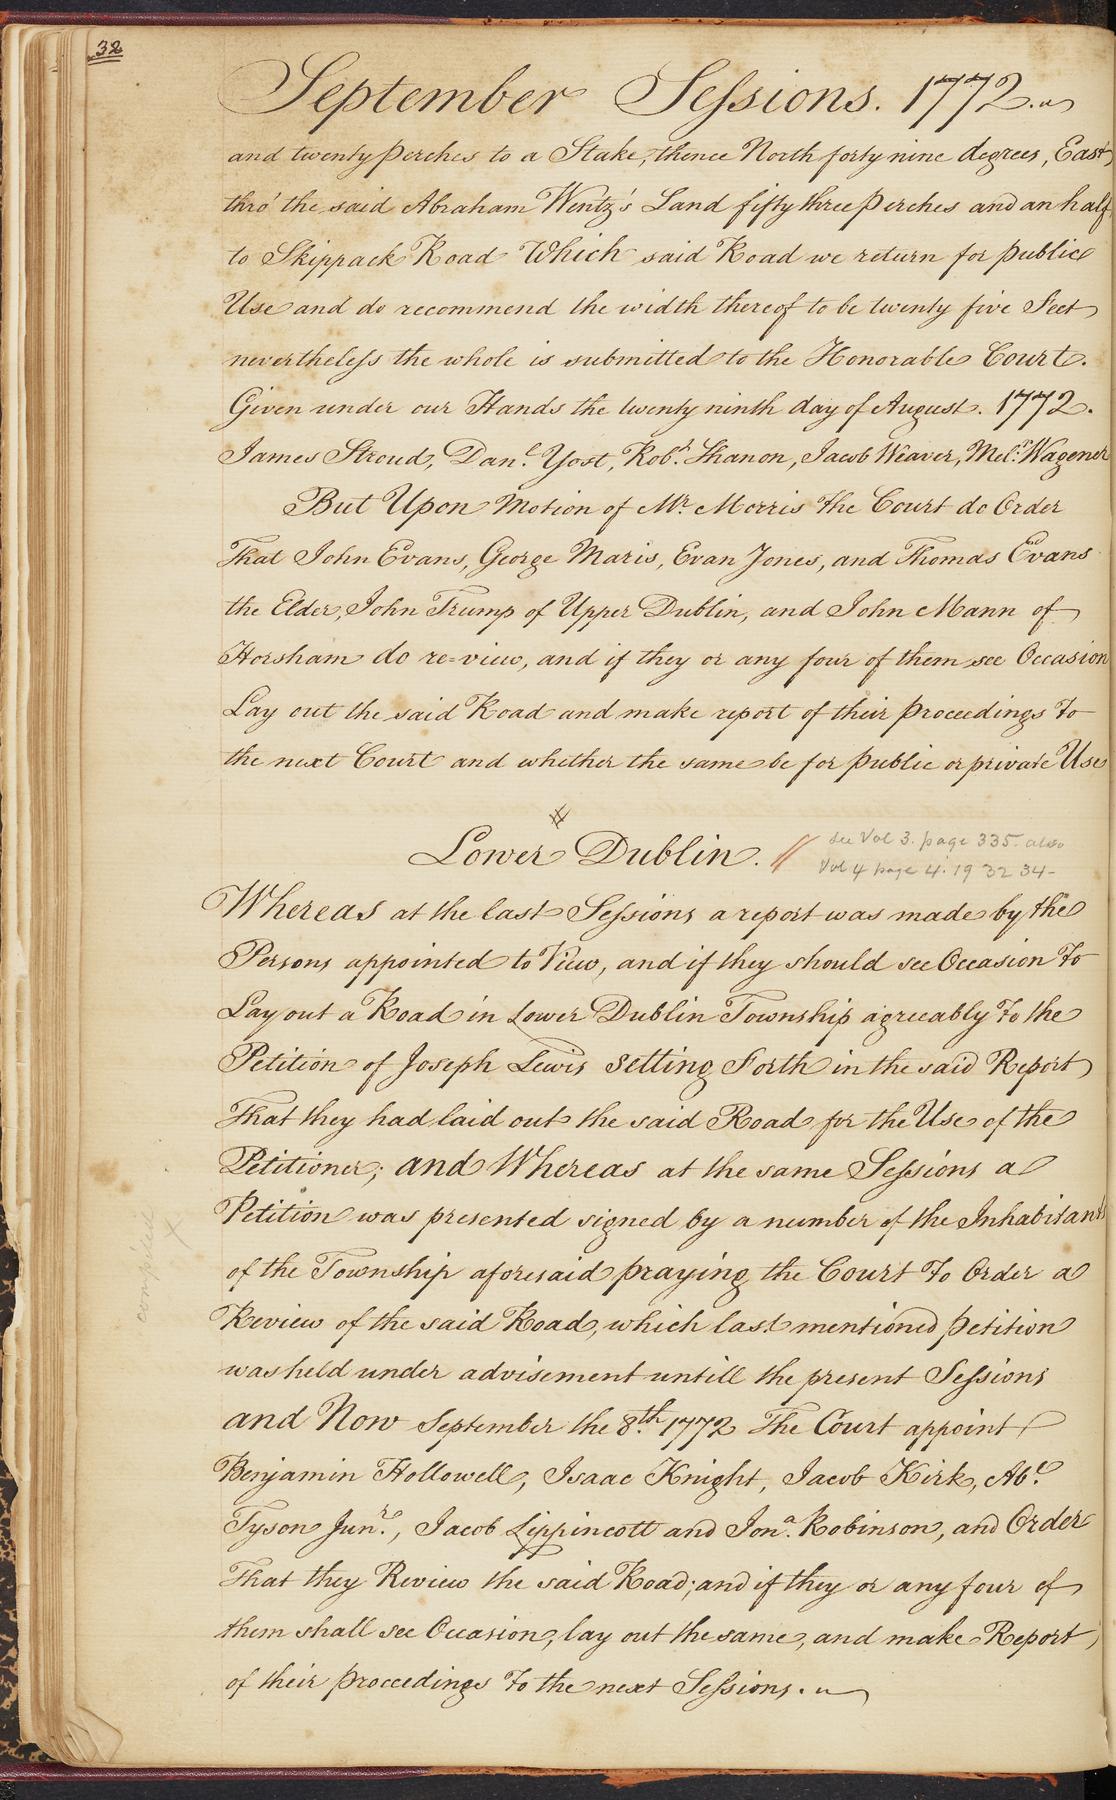 32
September Sessions. 1772.
and twenty perches to a Stake, thence North forty nine degrees, East
thro' the said Abraham Wentz's Land fifty three perches and an half
to Skippack Road Which said Road we return for public
Use and do recommend the width thereof to be twenty five Feet
nevertheless the whole is submitted to the Honorable Court.
Given under our Hands the twenty ninth day of August. 1772.
James Stroud, Dan.l Yost, Rob.t Shanon, Jacob Weaver, Mel.r Wagener
But Upon Motion of Mr. Morris the Court do Order
That John Evans, George Maris, Evan Jones, and Thomas Evans
the Elder, John Trump of Upper Dublin, and John Mann of
Horsham do re=view, and if they or any four of them see Occasion
Lay out the said Road and make report of their proceedings To
the next Court and whether the same be for public or private Use
#
Lower Dublin. // see Vol 3. page 335. also
Vol 4 page 4. 19 32 34-
Whereas at the last Sessions a report was made by the
Persons appointed to View, and if they should see Occasion To
Lay out a Road in Lower Dublin Township agreeably To the
Petition of Joseph Lewis Setting Forth in the said Report
That they had laid out the said Road for the Use of the
Petitioner; and Whereas at the same Sessions a
Petition was presented signed by a number of the Inhabitants
of the Township aforesaid praying the Court To Order a
Review of the said Road, which last mentioned petition
was held under advisement untill the present Sessions
and Now September the 8.th 1772 The Court appoint
Benjamin Hollowell, Isaac Knight, Jacob Kirk, Ab.l
Tyson Jun.r, Jacob Lippincott and Jon.a Robinson, and Order
That they Review the said Road; and if they or any four of
them shall see Occasion, lay out the same, and make Report
of their proceedings To the next Sessions.
x